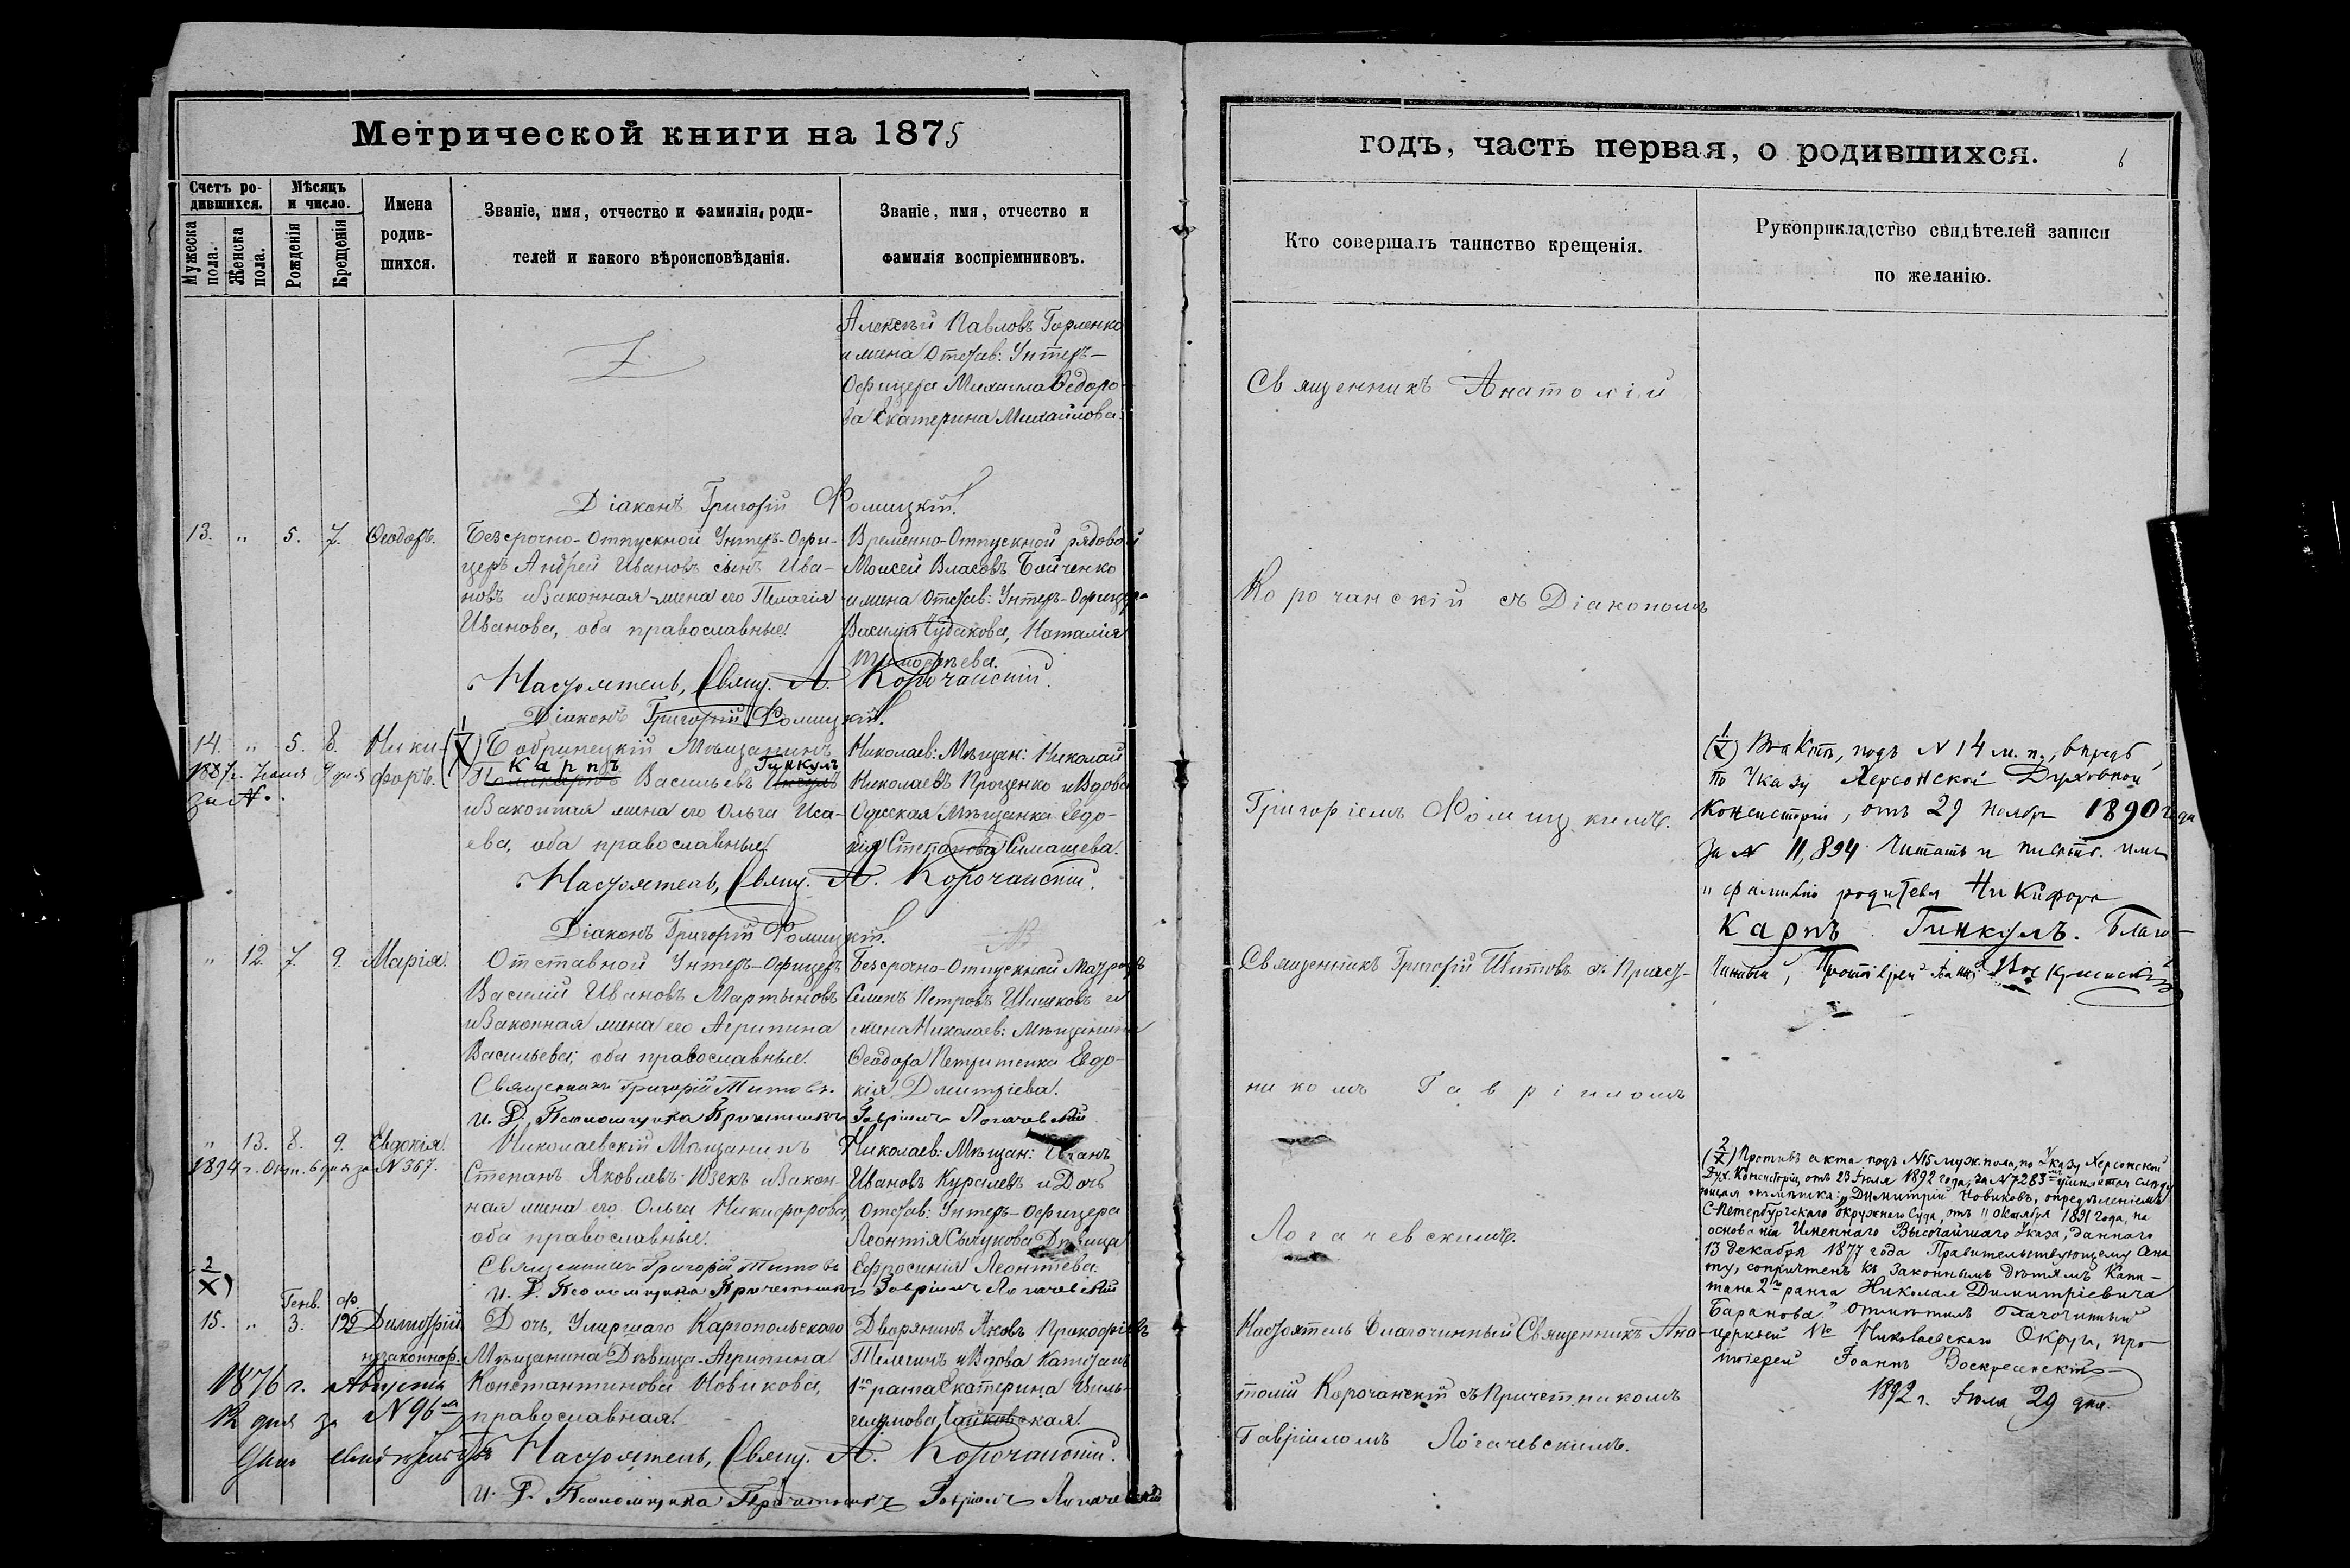 Метрической книги на 1875
Счетъ ро-
дившихся.
Мѣсяцъ
и число.
Мужеска
пола.
Женска
пола.
Рожденія
Крещенія
Имена
родив-
шихся.
Званіе, имя, отчество и фамилія, роди-
телей и какого вѣроисповѣданія.
Званіе, имя, отчество и
фамилія воспріемниковъ.
Алексѣй Павловъ Горленко
и жена Отстав: Унтеръ-
Офицера Михаила Ѳедоро-
ва Екатерина Михайлова.
Діаконъ Григорій Фомицкій.
13. " 5. 7. Ѳеодоръ.
Безсрочно-Отпускной Унтеръ-Офи-
церъ Андрей Ивановъ сынъ Ива-
новъ и Законная жена его Пелагія
Иванова, оба православные.
Временно-Отпускной рядовой
Моисей Власовъ Бойченко
и жена Отстав: Унтеръ-Офицера
Василія Чудакова, Наталія
Тимофѣева.
Настоятель, Свящ. А. Корочанскій.
Діаконъ Григорій Фомицкій.
14. " 5. 8. Ники-
форъ.
1887 г. Іюня 9 дня
за №.
(1/X) Бобринецкій Мѣщанинъ
Карпъ Гинкулъ
Поликарпъ Васильевъ
и Законная жена его Ольга Иса-
ева, оба православные.
Николаев: Мѣщан: Николай
Николаевъ Проценко и Вдова
Одесская Мѣщанка Евдо-
кія Степанова Симашева.
Настоятель, Свящ. А. Корочанскій.
Діаконъ Григорій Фомицкій.
" 12. 7. 9. Марія.
Отставной Унтеръ-Офицеръ
Василій Ивановъ Мартыновъ
и Законная жена его Агрипина
Васильева; оба православные.
Безсрочно-Отпускной Матросъ
Семенъ Петровъ Шишковъ и
жена Николаев: Мѣщанина
Ѳеодора Петритенка Евдо-
кія Дмитріева.
Священникъ Григорій Титовъ.
И. Д. Псаломщика Причетникъ Гавріилъ Логачевскій
" 13. 8. 9. Евдокія.
1894 г. Окт. 6 дня за № 367.
Николаевскій Мѣщанинъ
Степанъ Яковлевъ Юзекъ и Закон-
ная жена его Ольга Никифорова,
оба православные.
Николаев: Мѣщан: Иванъ
Ивановъ Куралевъ и Дочь
Отстав: Унтеръ-Офицера
Леонтія Сычукова Дѣвица
Ефросинія Леонтьева.
Священникъ Григорій Титовъ
И. Д. Псаломщика Причетникъ Гавріилъ Логачевскій
(2/X)
Генв. Ф.
15. " 3. Димитрій
незаконнор.
1876 г. Августа
12 дня за № 96
Дочь, Умершаго Каргопольскаго
Мѣщанина Дѣвица Агрипина
Константинова Новикова,
православная.
Дворянинъ Яковъ Прокофіевъ
Телегинъ и Вдова Капитана
1го ранга Екатерина Виль-
гелмова Чайковская.
Настоятель, Свящ. А. Корочанскій.
И. Д. Псаломщика Причетникъ Гавріилъ Логачевскій
годъ, часть первая, о родившихся.
6
Кто совершалъ таинство крещенія.
Рукоприкладство свидѣтелей записи
по желанію.
Священникъ Анатолій
Корочанскій съ Діакономъ
Григоріемъ Фомицкимъ.
Священникъ Григорій Титовъ съ Причет-
никомъ Гавріиломъ
Логачевскимъ.
Настоятель Благочинный Священникъ Ана-
толій Корочанскій съ Причетникомъ
Гавріиломъ Логачевскимъ.
(1/X) Въ актѣ, подъ № 14 м. п., впредь,
по Указу Херсонской Духовной
Консисторіи, отъ 29 Ноября 1890 года
за № 11,894 читать и писать имя
и фамилію родителя Никифора
Карпъ Гинкулъ. Благо-
чинный, Протоіерей Іоаннъ Воскресенскій
(2/X) Противъ акта подъ №15 муж. пола, по Указу Херсонской
Дух. Консисторіи, отъ 23 Іюля 1892 года, за № 7283 чинится слѣду-
ющая отмѣтка: "Димитрій Новиковъ, опредѣленіемъ
С-Петербургскаго окружнаго Суда, отъ 11 октября 1891 года, на
основаніи Именнаго Высочайшаго Указа, даннаго
13 декабря 1877 года Правительствующему Сена-
ту, сопричтенъ къ законнымъ дѣтямъ Капи-
тана 2го ранга Николая Димитріевича
Баранова" отмѣтилъ благочинный
церквей Николаевскаго Округа, про-
тоіерей Іоаннъ Воскресенскій
1892 г. Іюля 29 дня.